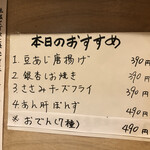 本日のおすすめ
1. 豆あじ唐揚げ 390円
2. 銀杏しお焼き 390円
3. ささみチーズフライ 390円
4. あん肝ぽんず 490円
※ おでん(7種) 490円